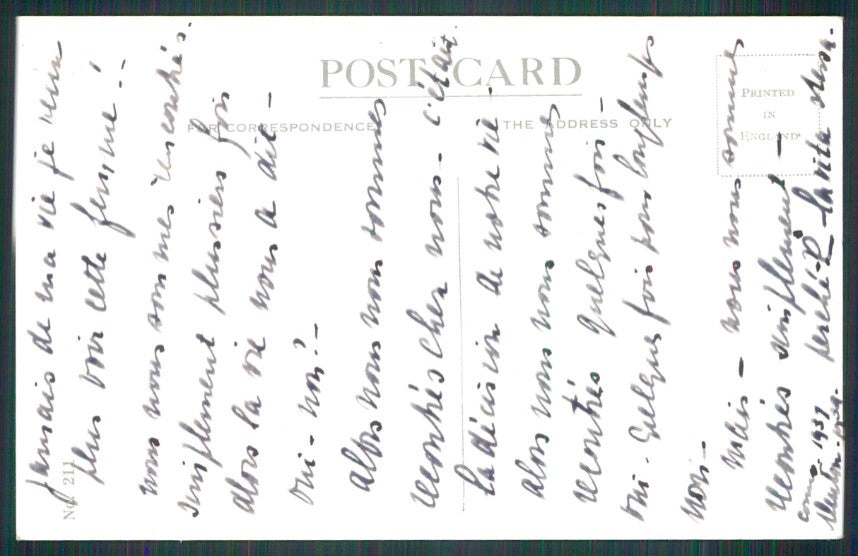 POST CARD
FOR CORRESPONDENCE
THE ADDRESS ONLY
PRINTED
IN
ENGLAND
No. 211
jamais de ma vie je veux
plus voir cette femme!..
nous nous sommes rencontrés.
simplement plusieurs fois
alors la vie nous a dit —
oui - non? —
alors nous nous sommes
recontrés chez nous - c'était
la décision de notre vie -
alors nous nous sommes
recontrés quelques fois —
oui - quelques fois pour longtemps
non —
Mais — nous nous sommes
recontrés simplement —
1937 perché? la vita stessa.